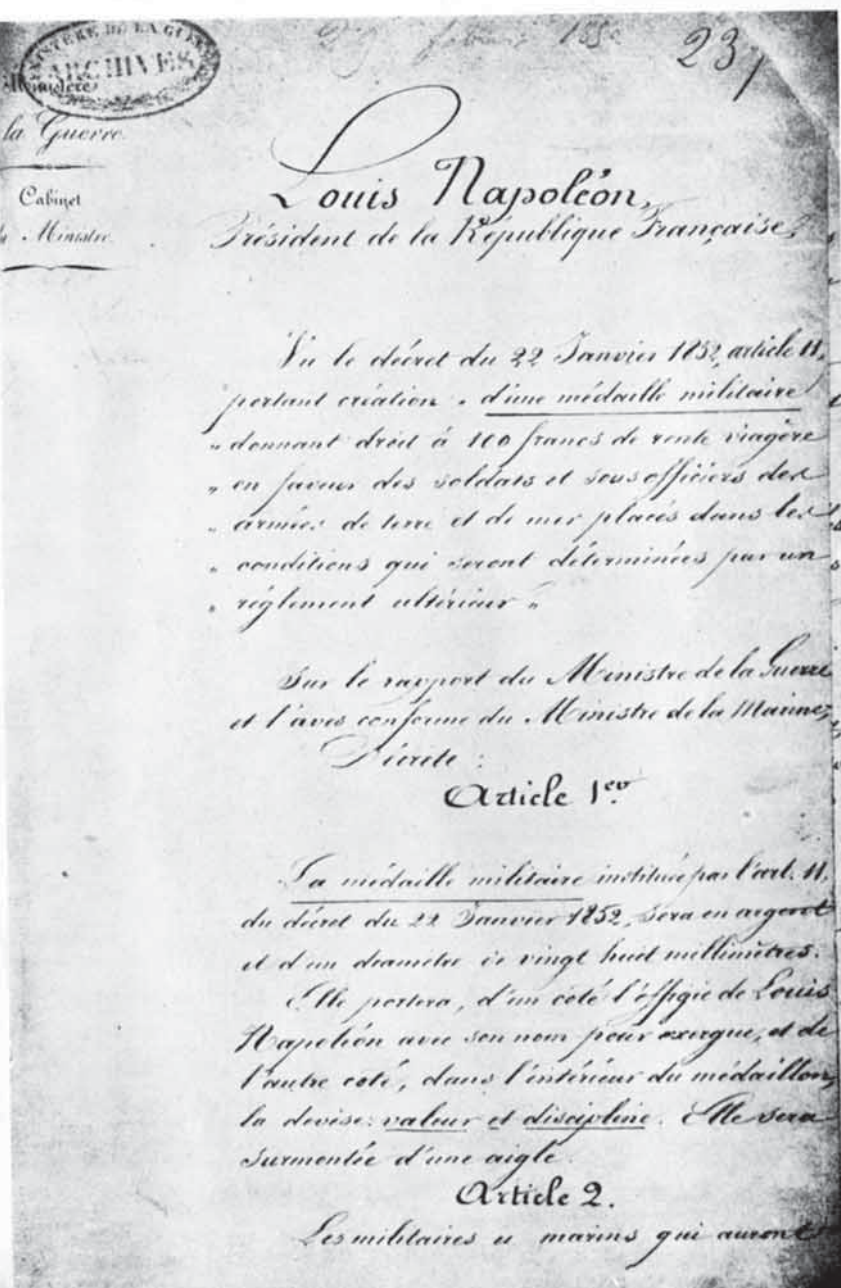 MINISTÈRE DE LA GUERRE
ARCHIVES
Ministère
la Guerre.
Cabinet
du Ministre.
février 1852
23
Louis Napoléon,
Président de la République Française,
Vu le décret du 22 Janvier 1852, article 11,
portant création " d'une médaille militaire
" donnant droit à 100 francs de rente viagère
" en faveur des soldats et sous officiers des
" armées de terre et de mer placés dans les
" conditions qui seront déterminées par un
" règlement ultérieur "
Sur le rapport du Ministre de la Guerre
et l'avis conforme du Ministre de la Marine,
Décrète :
Article 1er
La médaille militaire instituée par l'art. 11,
du décret du 22 Janvier 1852, sera en argent
et d'un diamètre de vingt huit millimètres.
Elle portera, d'un coté l'effigie de Louis
Napoléon avec son nom pour exergue, et de
l'autre coté, dans l'intérieur du médaillon,
la devise: valeur et discipline. Elle sera
surmontée d'une aigle.
Article 2.
Les militaires et marins qui auront